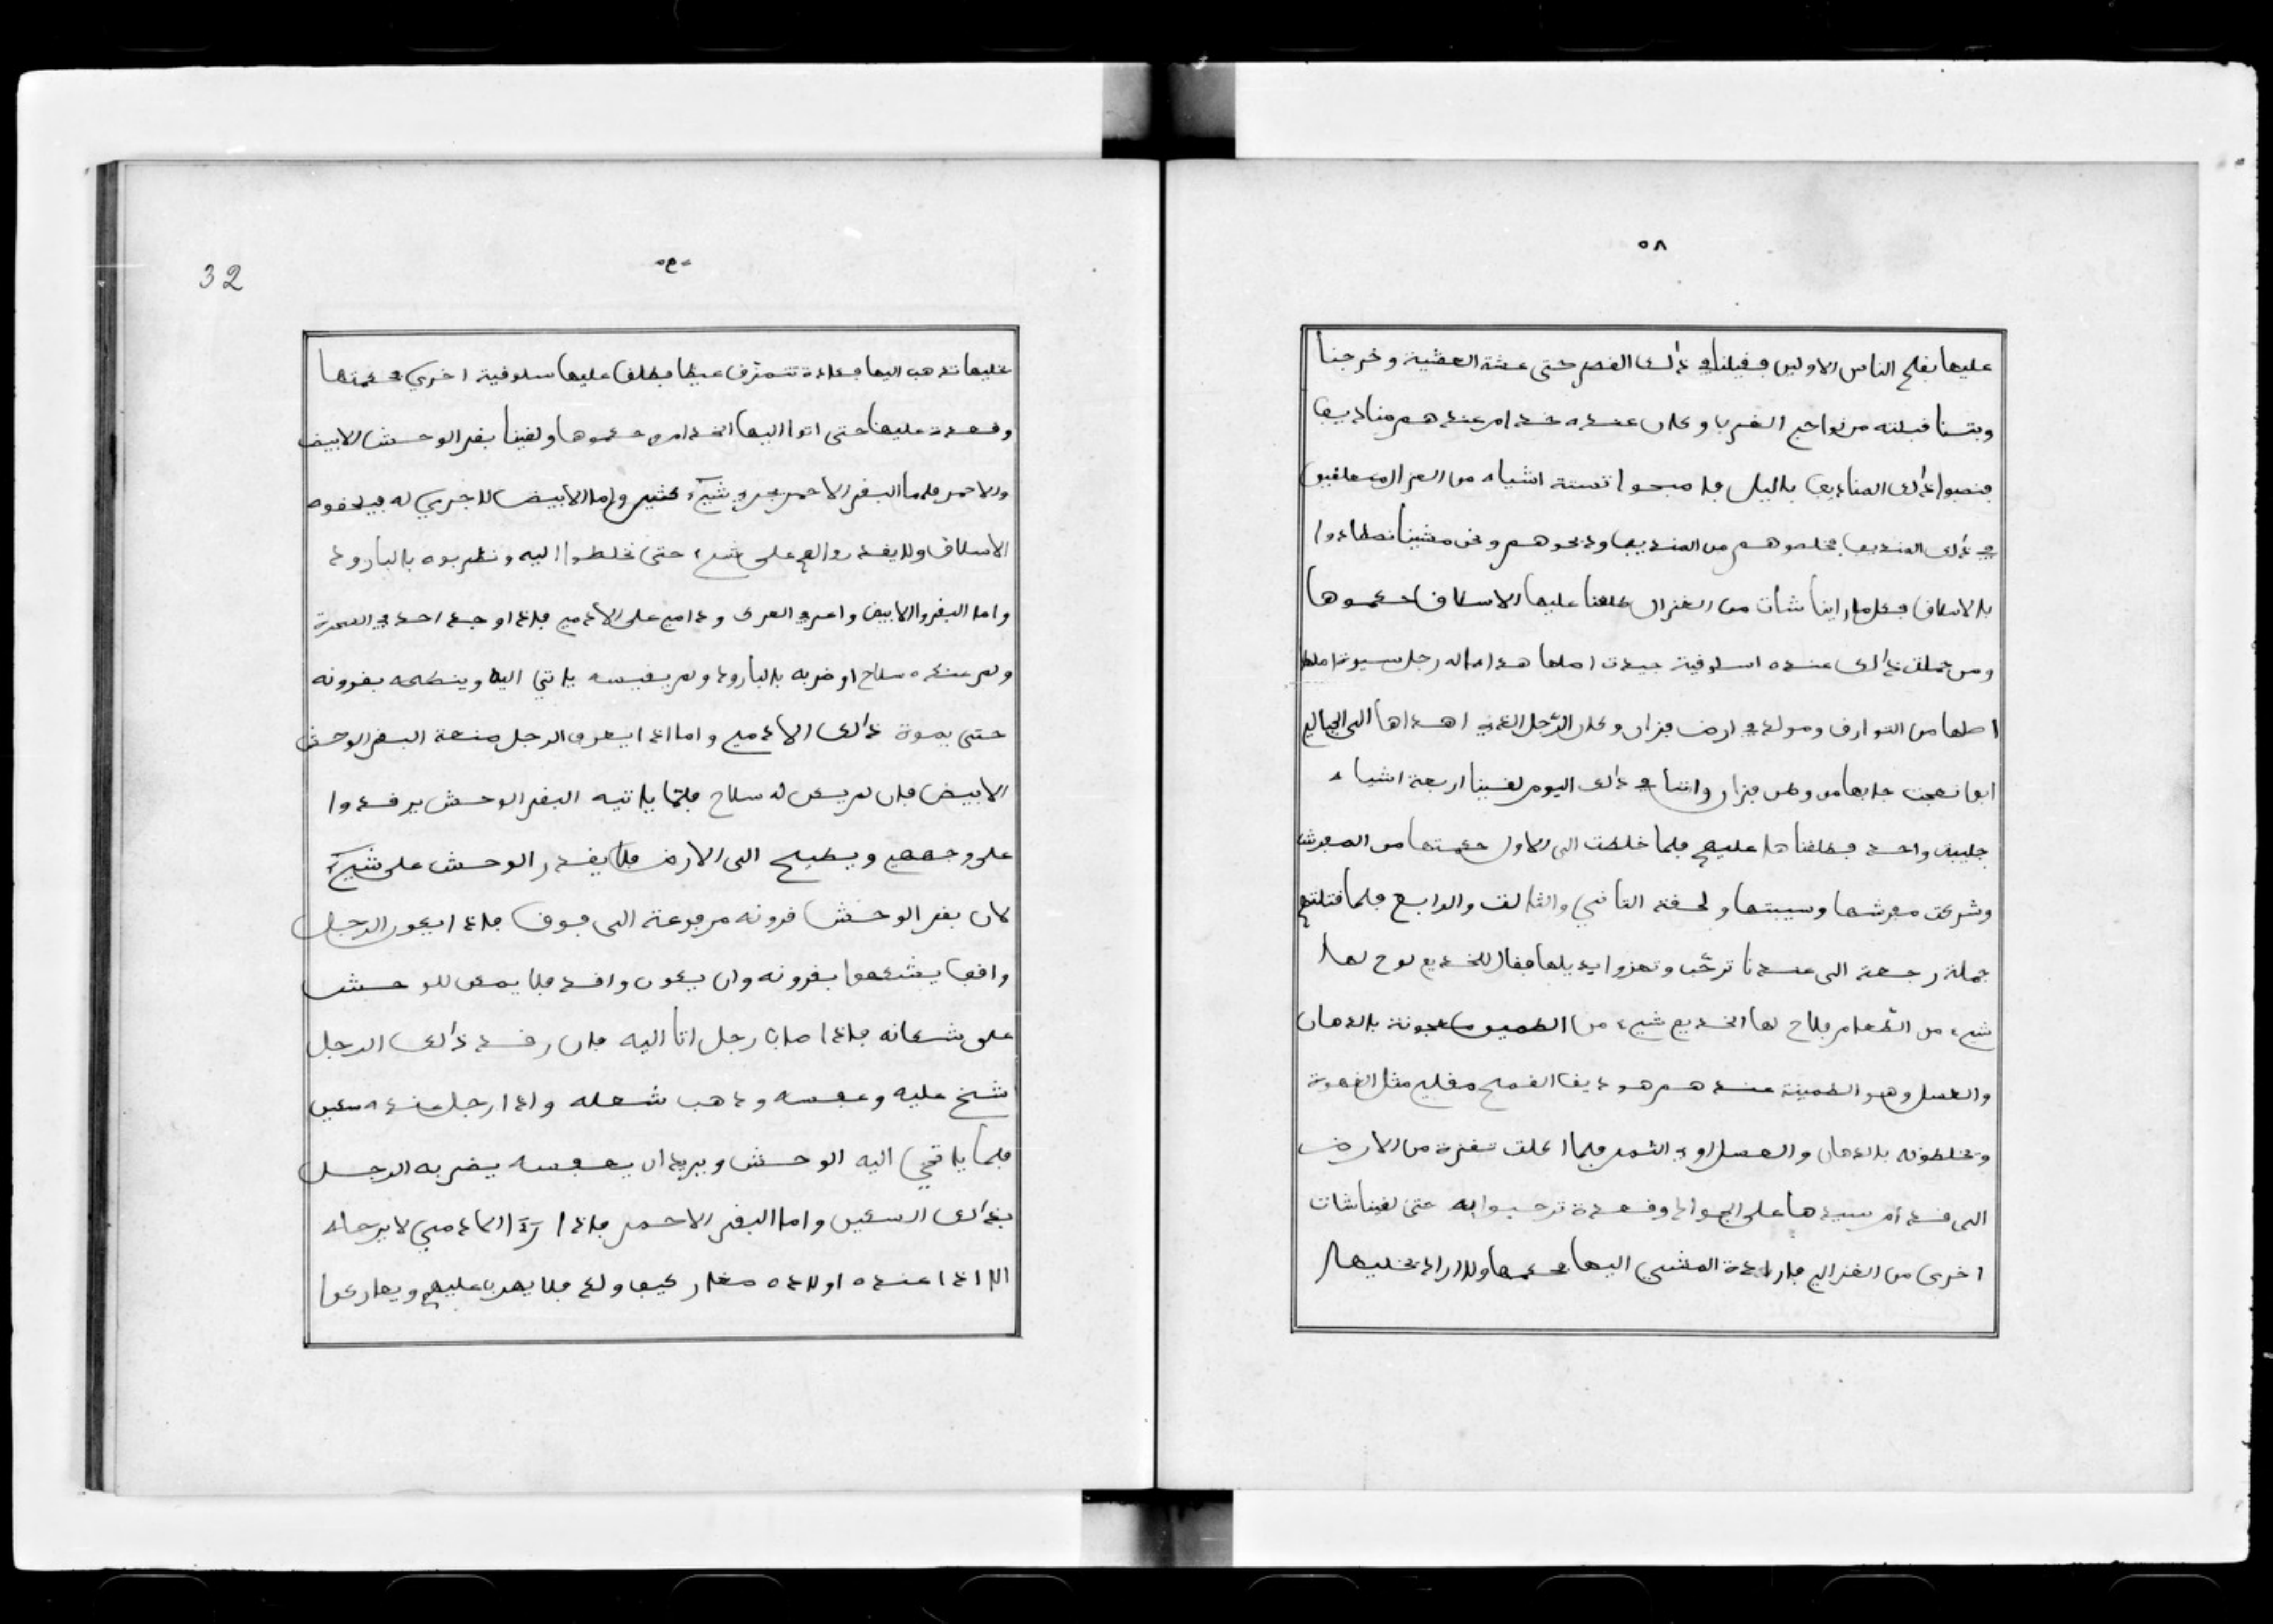 ٥٨
عليها بفلح الناس الاولين فقيلنا في ذالك القصر حتى عشة العشية وخرجنا
وبتنا قبلته من نواحي الغربا وكان عنده خدام عندهم مناديف
فنصبوا ذالك المناديف بالليل فاصبحوا تستة اشياه من الغزال متعلقين
في ذالك المنديف فخلصوهم من المنديف وذبحوهم ونحن مشينا نصطادوا
بالاسلاق فكل ما راينا شات من الغزال طلقنا عليها الاسلاق احكموها
ومن جملت ذالك عنده اسلوقية جيدت اصلها هداها له رجل سيوة اصلها
اصلها من التوارق ومولد في ارض فزان وكان الرجل الذي اهداها الى
جابها من وطن فزان واتنا في ذالك اليوم لقينا اربعة اشياء
جلبيت واحد فطلقناها عليهم فلما خلطت الى الاول حكمتها من
وشركت وسيبتها ولحقته الثاني والثالث والرابع فلما قتلتهم
جملة رجعة الى عندنا ترحّب وتهزوا بديلها فقال للخديم لوح لها
شيء من الطعام فلاح لها الخديم شيء من الطمين معجونة بالدهان
والعسل وهو الطمينة عندهم هو دقيق القمح مقلي مثل القهوة
وتخلطونه بالدهان والعسل او في الثمر فلما اكلت نقزة من الارض
الى قدام سيدها على الجواد وقعدة ترحبوا به حتى لقينا شات
اخرى من الغزال فارادة المشي اليها فحكمها ولا اراد يخليها
٥٩
32
يخليها تذهب اليها فعادة تتمزق غيظا فطلق عليها سلوقية اخرى فحكمتها
وقعدة عليها حتى اتوا اليها الخدام وحكموها ولقينا بقر الوحش الابيض
والاحمر فاما البقر الاحمر يجري شيء كثير واما الابيض لا جري له فيلحقوه
الاسلاق ولا يقدروا له على شيء حتى نخلطوا اليه ونضربوه بالبارود
واما البقر الابيض واعر في العرك ودامي على الادمي فاذا وجد احد في الصحرة
ولم عنده سلاح او ضربه بالبارود ولم يقيسه ياتي اليه وينطحه بقرونه
حتى يموة ذالك الادمي واما اذا يعرف الرجل صنعة البقر الوحش
الابيض فان لم يكن له سلاح فلمّا ياتيه البقر الوحش يرقدوا
على وجههم ويطيح الى الارض فلا يقدر الوحش على شيء
لان بقر الوحش قرونه مرفوعة الى فوق فاذا يكون الرجل
واقف يشدهوا بقرونه وان يكون راقد فلا يمكن للوحش
على شكانه فاذا صاب رجل اتا اليه فان رقد ذالك الرجل
شخ عليه وعفسه وذهب شعله واذا رجل عنده سكين
فلما ياتي اليه الوحش ويريد ان يعفسه يضربه الرجل
بذالك السكين واما البقر الاحمر فاذا رءا الادمي لا يرجاه
الا اذا عنده اولاده صغار كيف ولد فلا يهرب عليهم ويعاركوا